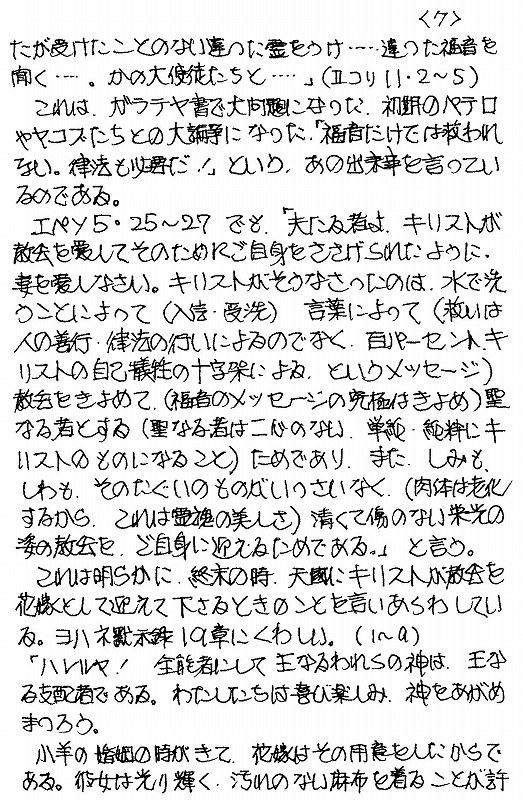 <7>
たが受けたことのない違った霊をうけ……違った福音を
聞く……。かの大使徒たちと……」(Ⅱコリ11・2~5)
これは、ガラテヤ書で大問題になった、初期のペテロ
やヤコブたちとの大論争になった、「福音だけでは救われ
ない。律法も必要だ!」という、あの出来事を言ってい
るのである。
エペソ5・25~27でも、「夫たる者よ、キリストが
教会を愛してそのためにご自身をささげられたように、
妻を愛しなさい。キリストがそうなさったのは、水で洗
うことによって(入信・受洗) 言葉によって(救いは
人の善行・律法の行いによるのでなく、百パーセントキ
リストの自己犠牲の十字架による、というメッセージ)
教会をきよめて、(福音のメッセージの究極はきよめ)聖
なる者とする(聖なる者は二心のない、単純・純粋にキ
リストのものになること)ためであり、また、しみも、
しわも、そのたぐいのものがいっさいなく、(肉体は老化
するから、これは霊魂の美しさ)清くて傷のない栄光の
姿の教会を、ご自身に迎えるためである。」と言う。
これは明らかに、終末の時、天国にキリストが教会を
花嫁として迎えて下さるときのことを言いあらわしてい
る。ヨハネ黙示録19章にくわしい。(1~9)
「ハレルヤ! 全能者にして王なるわれらの神は、王な
る支配者である。わたしたちは喜び楽しみ、神をあがめ
まつろう。
小羊の婚姻の時がきて、花嫁はその用意をしたからで
ある。彼女は光り輝く、汚れのない麻布を着ることが許